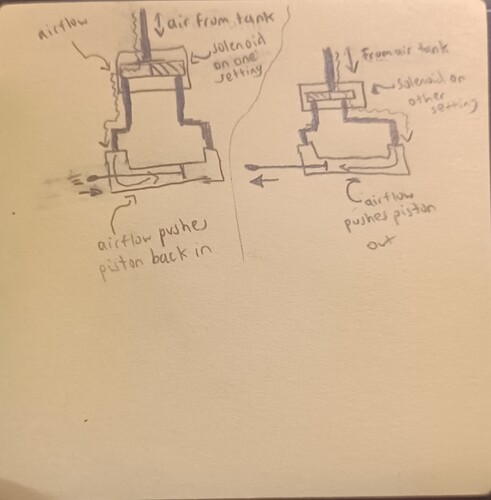 airflow
air from tank
solenoid
on one
setting
airflow pushes
piston back in
From air tank
solenoid on
other
setting
airflow
pushes piston
out